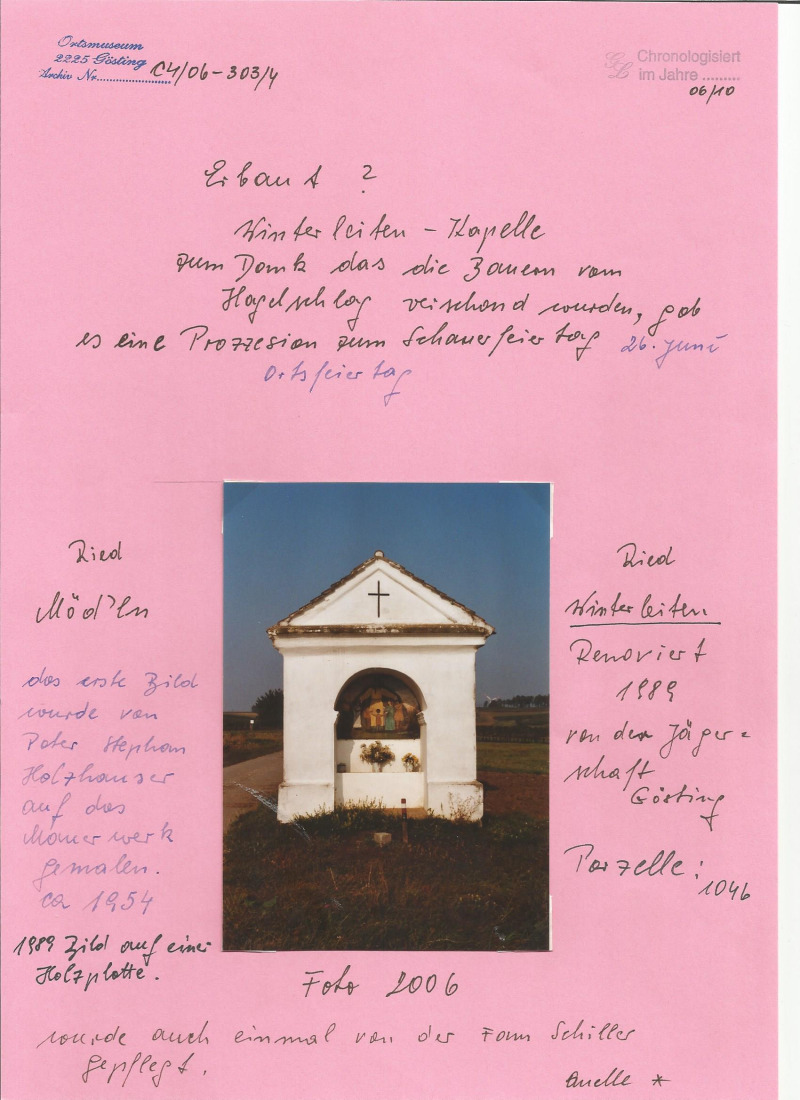 Ortsmuseum
2225 Gösting
Archiv Nr. C4/06-303/4
GL Chronologisiert
im Jahre .........
06/10
Erbaut ?
Winterleiten - Kapelle
zum Dank das die Bauern vom
Hagelschlag verschond wurden, gab
es eine Prozzesion zum Schauerfeiertag 26. Juni
Ortsfeiertag
Ried
Möd'ln
das erste Bild
wurde von
Pater Stephan
Holzhauser
auf das
Mauerwerk
gemalen.
ca 1954
1989 Bild auf einer
Holzplatte.
Ried
Winterleiten
Renoviert
1989
von der Jäger=
schaft
Gösting
Parzelle:
1046
Foto 2006
wurde auch einmal von der Fam Schiller
gepflegt.
Quelle *